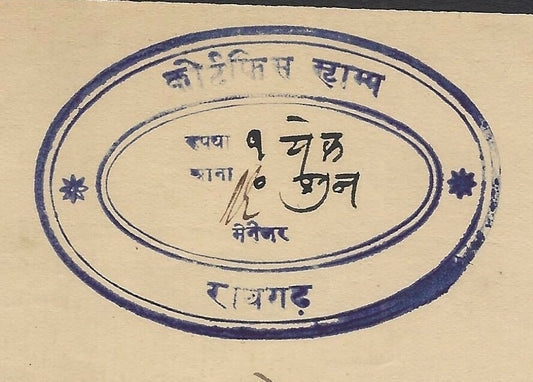 कोर्टफिस स्टाम्प
रुपया १ येक
आना ० शुन
मेनेजर
रायगढ़